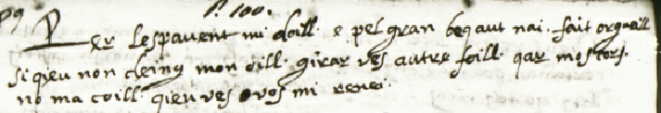 P. 100.
Per lespauent mi doill. e pel gran beqaut nai. fait orgueill
si qeu non deing mon oill. girar ves autre foill. qar mos cors.
no ma coill. qieu ves uos mi renei.